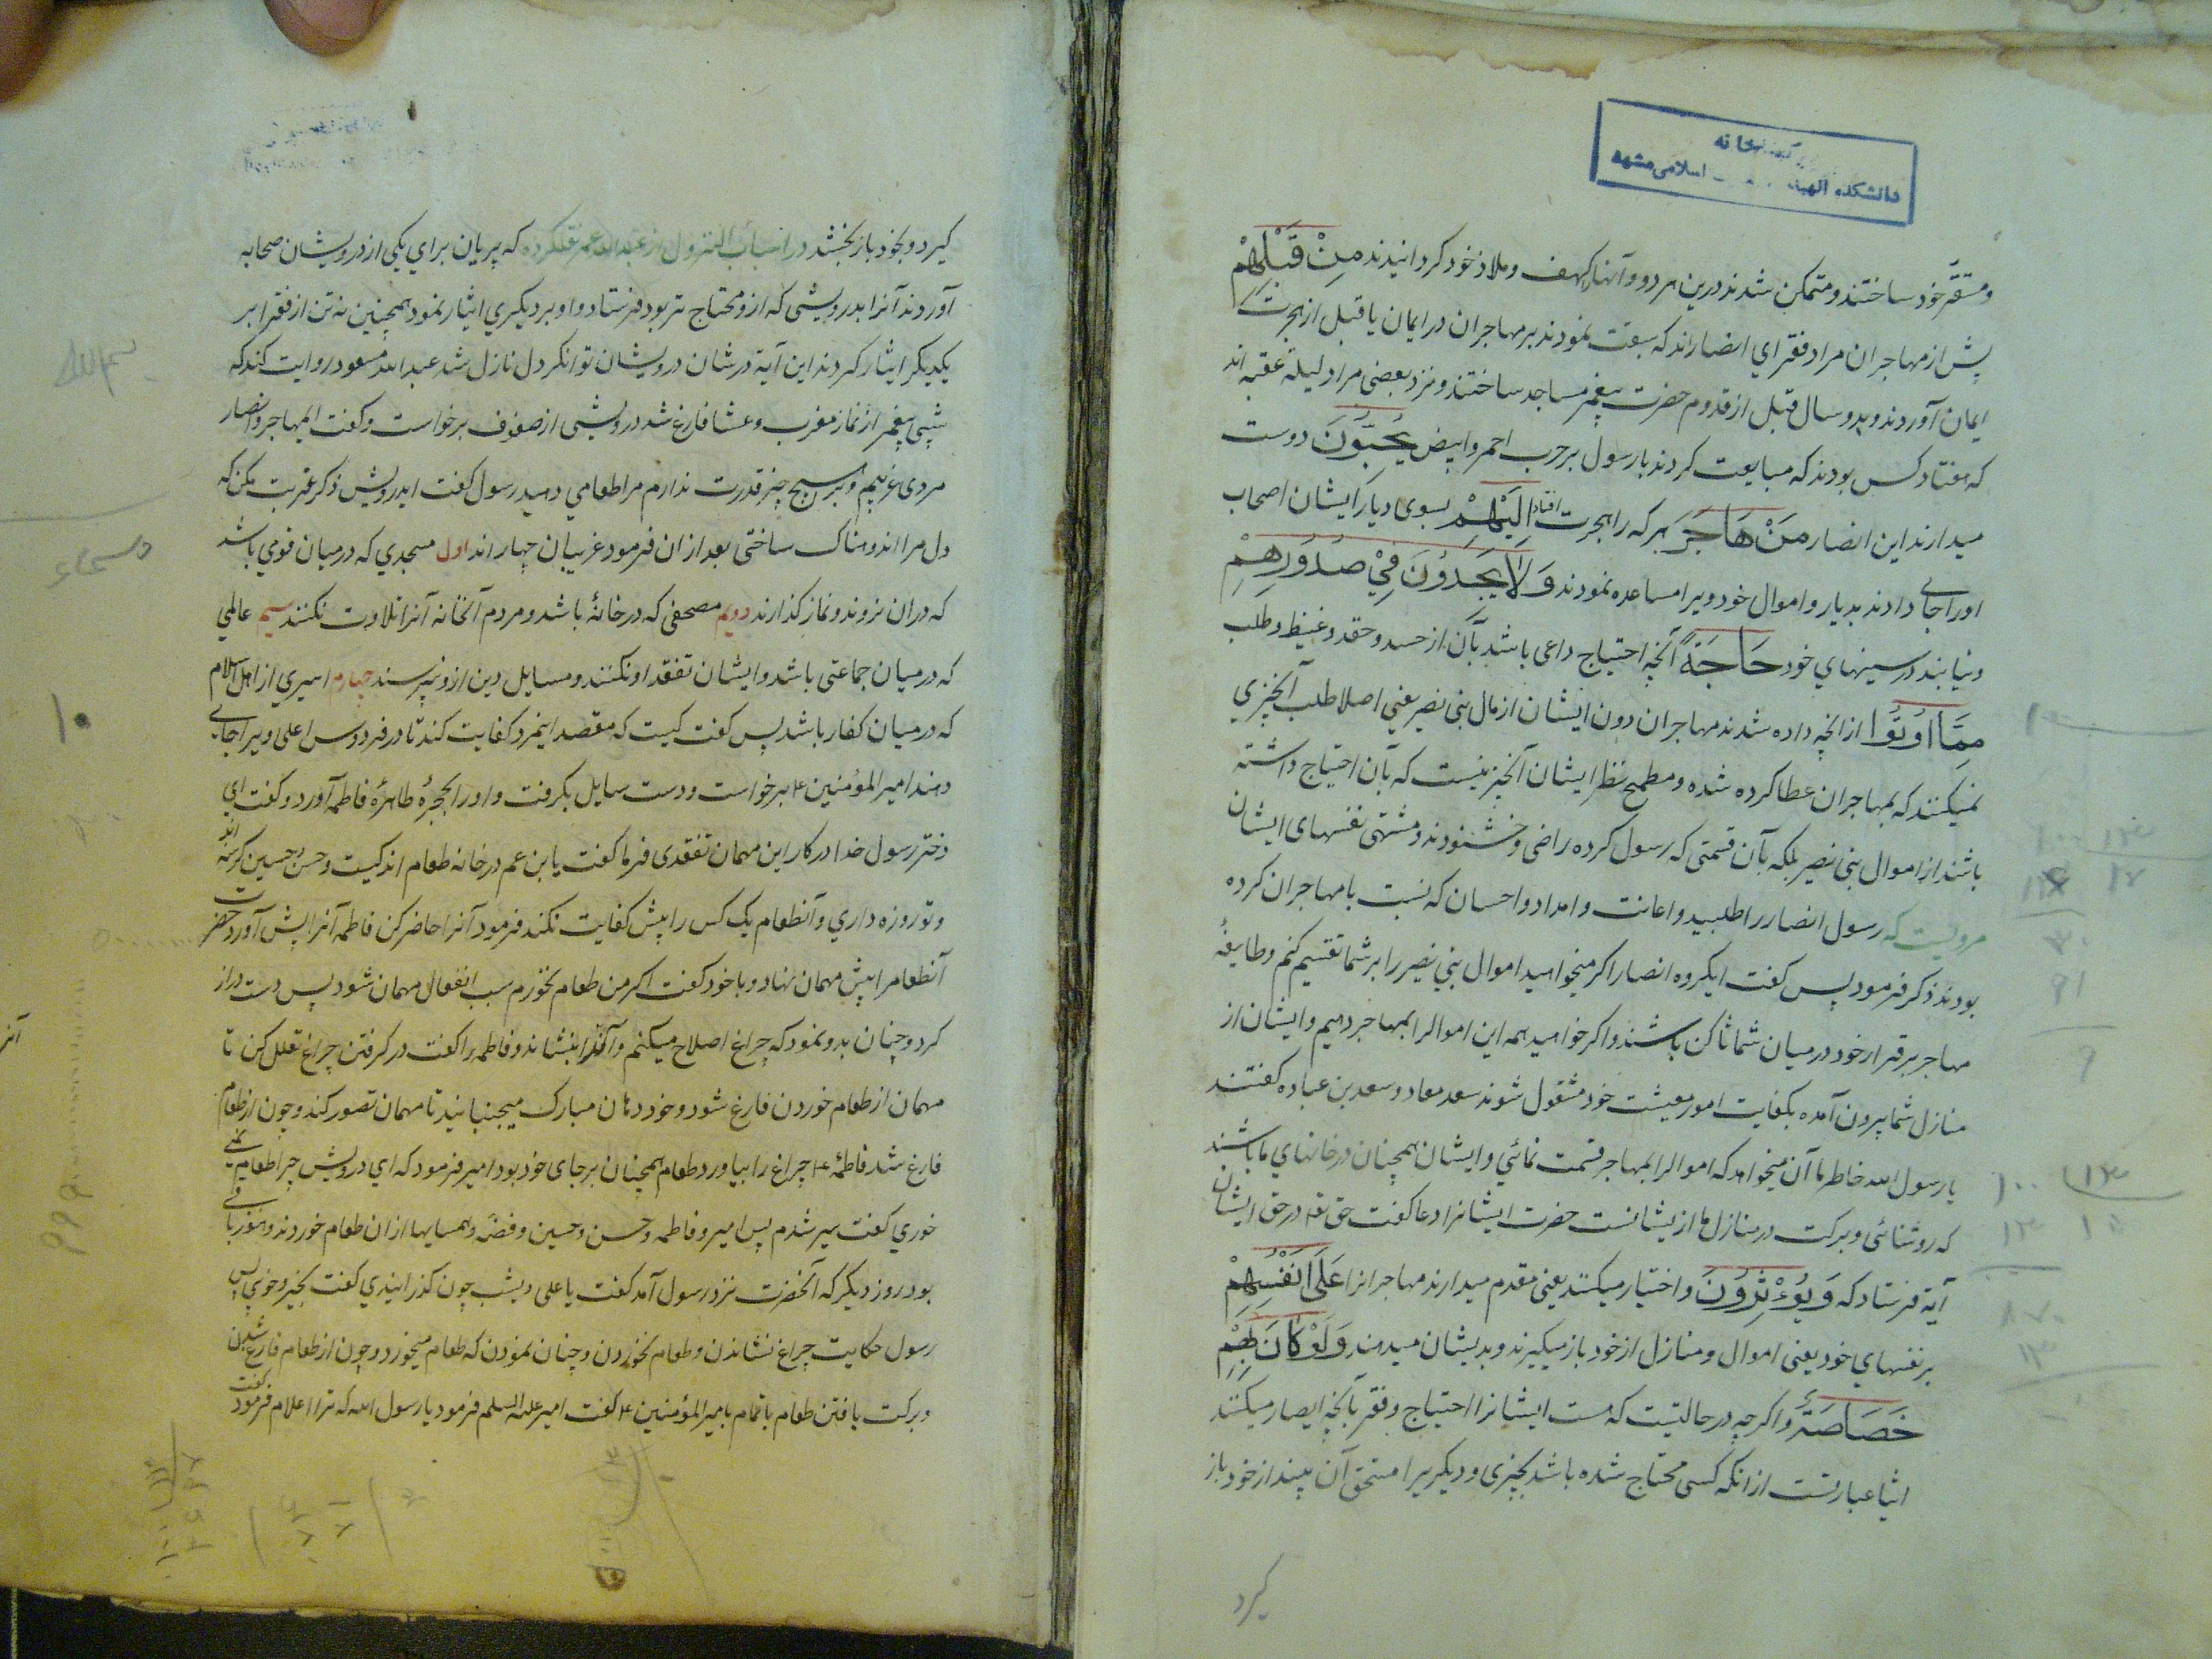 کتابخانه
دانشکده الهیات اسلامی مشهد
و مستقر خود ساختند و متمکن شدند درین هر دو و آنها را کهف و ملاذ خود کردانیدند مِنْ قَبْلِهِمْ
پش از مهاجران مراد فقرای انصاراند که سبقت نمودند بر مهاجران در ایمان یا قبل از هجرت
ایمان آوردند و بدو سال قبل از قدوم حضرت پیغمبر مساجد ساختند و نزد بعضی مراد لیلة عقبه اند
که هفتاد کس بودند که مبایعت کردند با رسول بر حرب احمر و ابیض یُحِبُّونَ دوست
میدارند این انصار مَنْ هَاجَرَ هر که را هجرت افتاد اِلَیْهِمْ بسوی دیار ایشان اصحاب
او را جای دادند بدیار و اموال خود ویرا مساعده نمودند وَلَا یَجِدُونَ فِیْ صُدُورِهِمْ
و نیابند در سینهای خود حَاجَةً آنچه احتیاج داعی باشد بآن از حسد و حقد و غیظ و طلب
مِمَّا اُوتُوا از آنچه داده شدند مهاجران دون ایشان از مال بنی نضیر یعنی اصلا طلب آنچیزی
نمیکنند که بمهاجران عطا کرده شده و مطمح نظر ایشان آنچیز نیست که بآن احتیاج داشته
باشند از اموال بنی نضیر بلکه بآن قسمتی که رسول کرده راضی و خشنودند و مشتهی نفسهای ایشان
مرویست که رسول انصار را طلبید و اعانت و امداد و احسان که نسبت با مهاجران کرده
بودند ذکر فرمود پس کفت ایکروه انصار اکر میخواهید اموال بنی نضیر را بر شما تقسیم کنم و طایفهٔ
مهاجر برقرار خود در میان شما ساکن باشند و اکر خواهید همه این اموالرا بمهاجر دهیم و ایشان از
منازل شما بیرون آمده بکفایت امور معیشت خود مشغول شوند سعد معاد و سعد بن عباده کفتند
یا رسول الله خاطر ما آن میخواهد که اموالرا بمهاجر قسمت نمائی و ایشان همچنان در خانهای ما باشند
که روشنائی و برکت در منازل ما از یشانست حضرت ایشانرا دعا کفت حق تع در حق ایشان
آیه فرستاد که وَیُؤْثِرُونَ و اختیار میکنند یعنی مقدم میدارند مهاجرانرا عَلَی اَنْفُسِهِمْ
بر نفسهای خود یعنی اموال و منازل از خود باز میگیرند و بدیشان میدهند وَلَوْ کَانَ بِهِمْ
خَصَاصَةٌ و اکرچه در حالتیست که هست ایشانرا احتیاج و فقر بآنچه ایصار میکنند
ایثا عبارتست از انکه کسی محتاج شده باشد بچیزی و دیکریرا مستحق آن بیند از خود باز
کیرد
کیرد و بخود باز بخشد در اسباب النزول از عبد الله عمر نقلکرده که بریان برای یکی از درویشان صحابه
آوردند آنرا بدرویشی که ازو محتاج تر بود فرستاد و او بر دیکری ایثار نمود همچنین نه تن از فقرا بر
یکدیکر ایثار کردند این آیة در شان درویشان توانکر دل نازل شد عبد الله مسعود روایت کند که
شبی پیغمبر از نماز مغرب و عشا فارغ شد درویشی از صفوف برخواست و کفت ایمهاجر و انصار
مردی غریبم و بر هیچ چیز قدرت ندارم مرا طعامی دهید رسول کفت ایدرویش ذکر غربت مکن که
دل مرا اندوهناک ساختی بعد از ان فرمود غریبان چهار اند اول مسجدی که در میان قومی باشد
که در ان نروند و نماز کذارند دویم مصحفی که در خانهٔ باشد و مردم آنخانه آنرا تلاوت نکنند سیم عالمی
که در میان جماعتی باشد و ایشان تفقد او نکنند و مسایل دین ازو نپرسند چهارم اسیری از اهل اسلام
که در میان کفار باشد پس کفت کیست که مقصد اینمرد کفایت کند تا در فردوس اعلی ویرا جای
دهند امیر المؤمنین ع برخواست و دست سایل بکرفت و او را بحجرهٔ طاهرهٔ فاطمه آورد و کفت ای
دختر رسول خدا در کار این مهمان تفقدی فرما کفت یا بن عم در خانه طعام اندکیست و حسن و حسین کرسنه اند
و تو روزه داری و آنطعام یک کس را پیش کفایت نکند فرمود آنرا حاضر کن فاطمه آنرا پش آورد حضرت
آنطعامرا پیش مهمان نهاد و با خود کفت اکر من طعام نخورم سبب انفعال مهمان شود پس دست دراز
کرد و چنان بدو نمود که چراغ اصلاح میکنم و آنرا بنشاند و فاطمه را کفت در کرفتن چراغ تعلل کن تا
مهمان از طعام خوردن فارغ شود و خود دهان مبارک میجنبانید تا مهمان تصور کند و چون از طعام
فارغ شد فاطمهٔ ع چراغ را بیاورد طعام همچنان بر جای خود بود امیر فرمود که ای درویش چرا طعام نمی
خوری کفت سیر شدم پس امیر و فاطمه و حسن و حسین و فضه و همسایها از ان طعام خوردند و هنوز باقی
بود روز دیکر که آنحضرت نزد رسول آمد کفت یا علی دیشب چون کذرانیدی کفت بخیر و خوبی پس
رسول حکایت چراغ نشاندن و طعام نخوردن و چنان نمودن که طعام میخورد و چون از طعام فارغ شدن
و برکت یافتن طعام بتمام با امیر المؤمنین ع کفت امیر علیه السلم فرمود یا رسول الله که ترا اعلام فرمود کفت